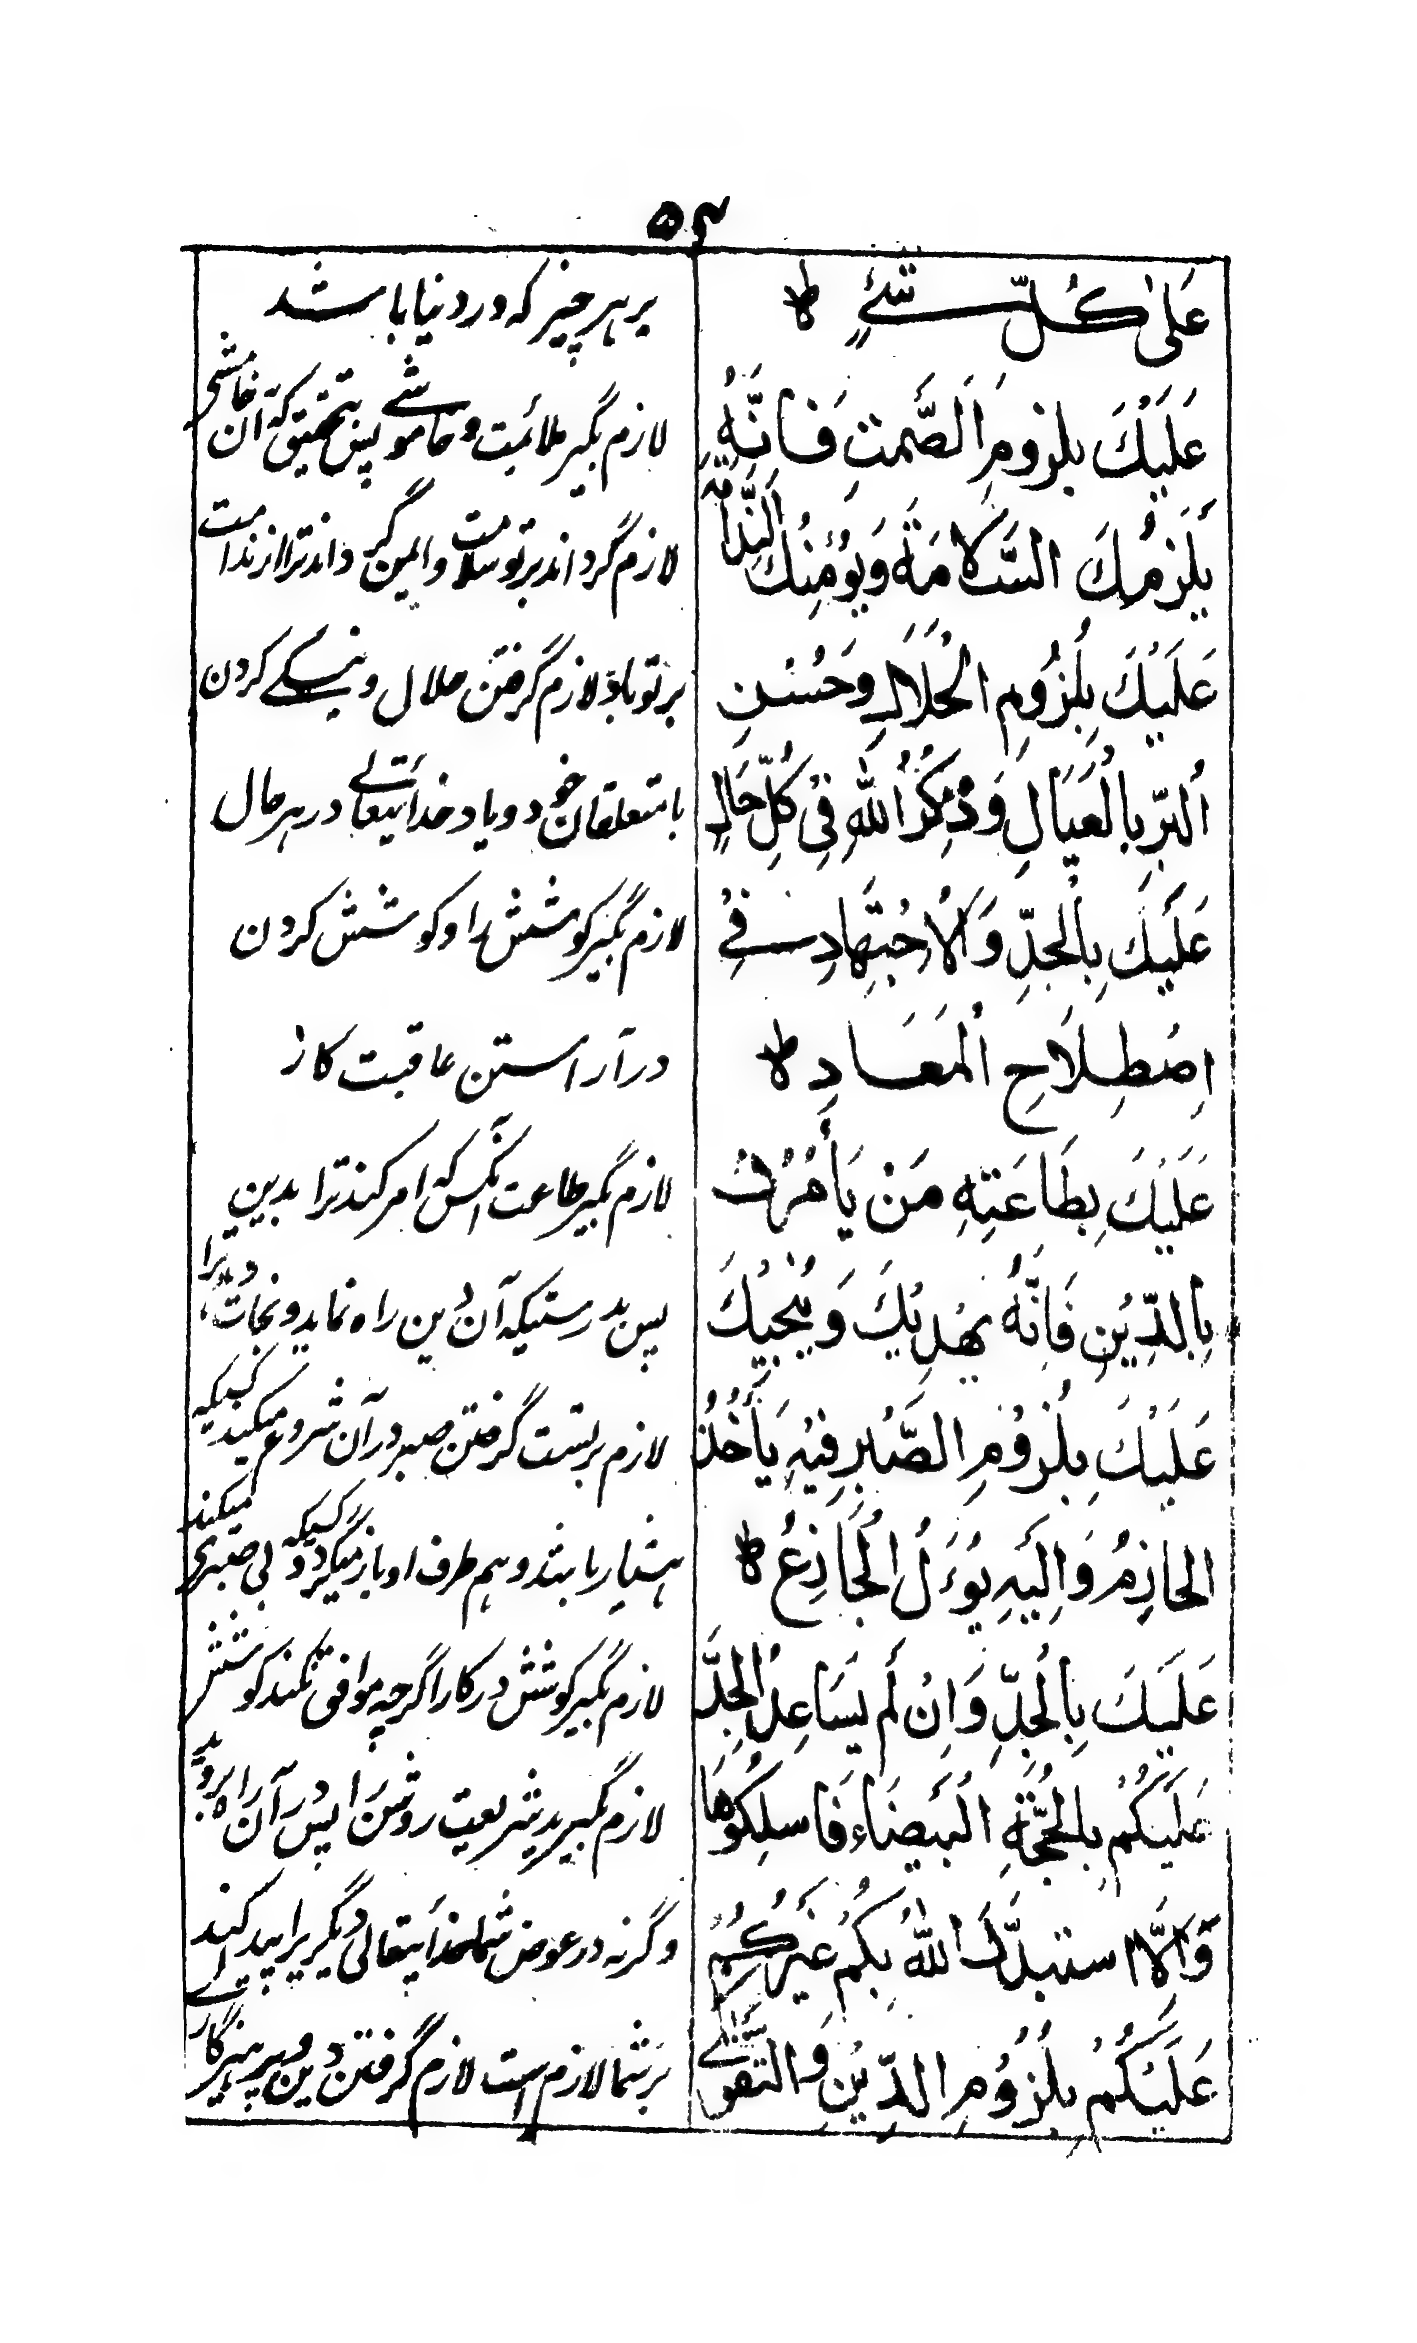 ۵۴
عَلٰی كُلِّ شَیْءٍ ط
بر ہر چیز کہ در دنیا باشد
عَلَیْكَ بِلُزُومِ الصَّمتِ فَاِنَّهُ
لازم بگیر ملائمت و خاموشے پس بتحقیق کہ آن خامشی
یَلْزِمُكَ السَّلَامَةَ وَیُؤْمِنُكَ النَّدَامَةَ
لازم گرداند بر تو سلامت و ایمن گرداند ترا از ندامت
عَلَیْكَ بِلُزُوْمِ الْحَلَالِ وَحُسْنِ
بر تو باد لازم گرفتن حلال و نیکے کردن
الْبِرِّ بِالْعَیَالِ وَذِكْرُ اللهِ فِیْ كُلِّ حَالٍ
با متعلقان خود و یاد خدائیتعالے در ہر حال
عَلَیْكَ بِالْجِدِّ وَالْاِجْتِهَادِ فِیْ
لازم بگیر کوشش را و کوشش کردن
اِصْطِلَاحِ الْمَعَادِ ط
در آراستن عاقبت کار
عَلَیْكَ بِطَاعَتِهِ مَنْ یَأْمُرُكَ
لازم بگیر طاعت آنکس کہ امر کند ترا بدین
بِالدِّیْنِ فَاِنَّهُ یَهْدِیْكَ وَیُنْجِیْكَ
پس بدرستیکہ آن دین راہ نماید و نجات دہد ترا
عَلَیْكَ بِلُزُوْمِ الصَّبْرِ فِیْهِ یَأْخُذُ
لازم بر تست گرفتن صبر در آن شروع میکند کسیکہ
الحَازِمُ وَاِلَیْهِ یُوَءَلُ الْجَازِعُ ط
ہشیار باشد و ہم طرف او باز میگردد کسیکہ بی صبری میکند
عَلَیْكَ بِالْجِدِّ وَاِنْ لَم یُسَاعِدُ الْجِدَّ
لازم بگیر کوشش در کار اگرچہ موافق نکند کوشش
عَلَیْكُمْ بِلحُجَّتهِ الْبَیضَاءِ فَاسلِكُوهَا
لازم بگیرید شریعت روشن را پس در آن راہ بروید
وَاِلَّا استبدَّلَ اللهُ بِكُمْ غَیْرَكُمْ
و گرنہ در عوض شما خدائیتعالی دیگریرا پیدا کند
عَلَیْكُمْ بِلُزُوْمِ الدِّیْنِ وَالتَّقْوٰے
بر شما لازم است لازم گرفتن دین و پرہیزگاری